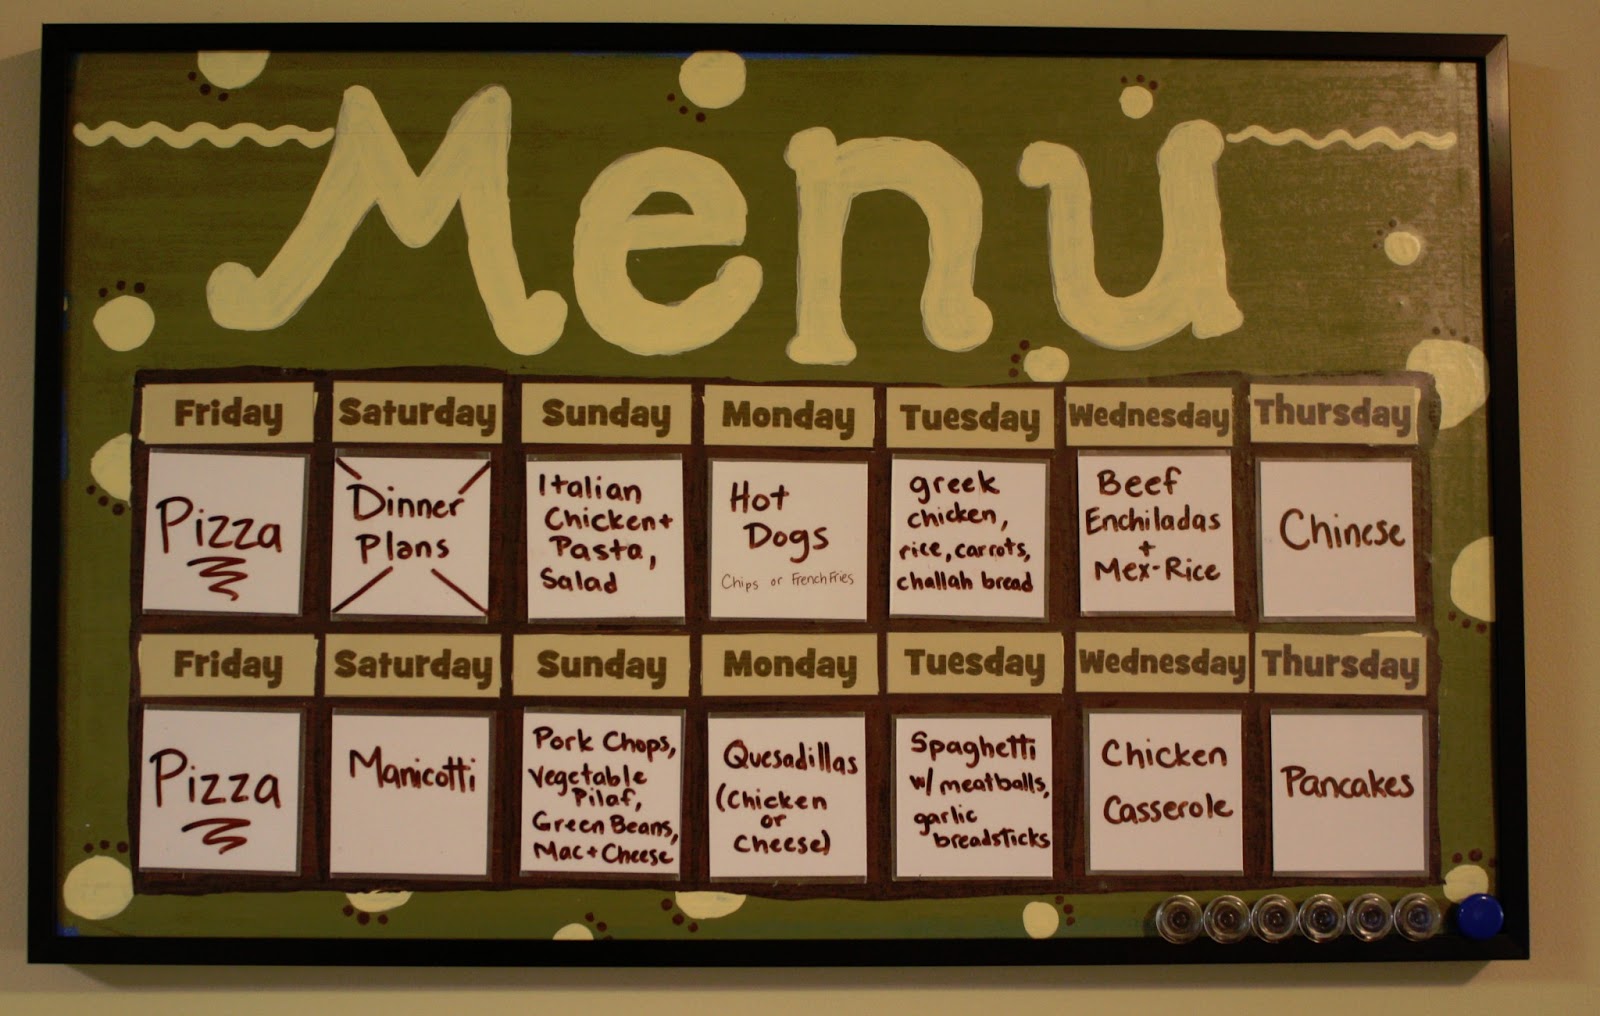 Menu
Friday Saturday Sunday Monday Tuesday Wednesday Thursday
Pizza
Dinner
Plans
Italian
Chicken +
Pasta,
Salad
Hot
Dogs
Chips or French Fries
greek
chicken,
rice, carrots,
challah bread
Beef
Enchiladas
+
Mex-Rice
Chinese
Friday Saturday Sunday Monday Tuesday Wednesday Thursday
Pizza
Manicotti
Pork Chops,
Vegetable
Pilaf,
Green Beans,
Mac + Cheese
Quesadillas
(Chicken
or
Cheese)
Spaghetti
w/ meatballs,
garlic
breadsticks
Chicken
Casserole
Pancakes